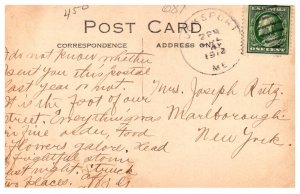 450
681
POST CARD
CORRESPONDENCE
ADDRESS ONLY
2 PM
1912
ME
I do not know whether
sent you this postal
last year or not.
It is the foot of our
street. Everything was
in fine order, food
flowers galore. Had
frightful storm
last night. Struck
two places.
Mrs. Joseph Rutz.
Marlborough
New York.